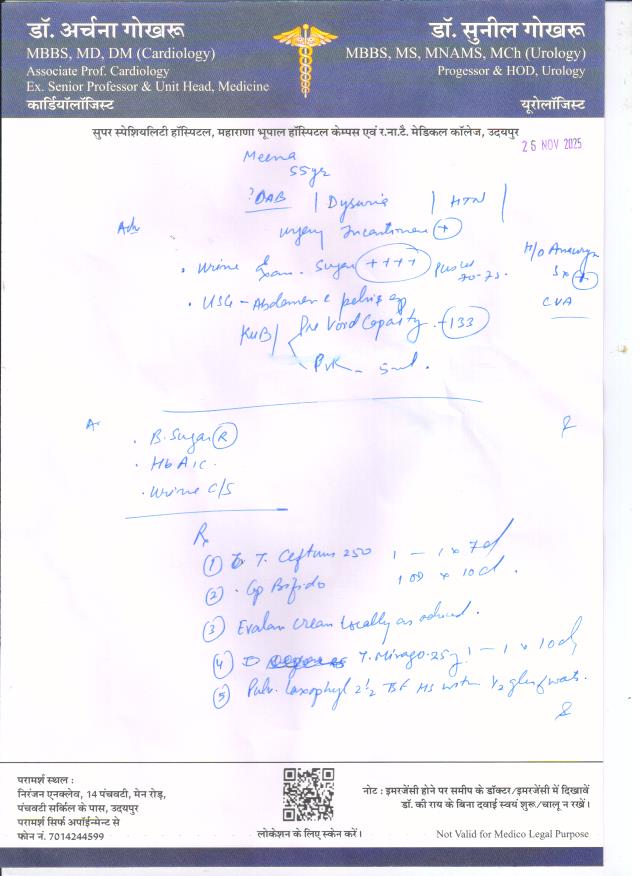 डॉ. अर्चना गोखरू
MBBS, MD, DM (Cardiology)
Associate Prof. Cardiology
Ex. Senior Professor & Unit Head, Medicine
कार्डियॉलॉजिस्ट
डॉ. सुनील गोखरू
MBBS, MS, MNAMS, MCh (Urology)
Progessor & HOD, Urology
यूरोलॉजिस्ट
सुपर स्पेशियलिटी हॉस्पिटल, महाराणा भूपाल हॉस्पिटल केम्पस एवं र.ना.टै. मेडिकल कॉलेज, उदयपुर
26 NOV 2025
Meena
55yr
?OAB | Dysuria | HTN |
Adv
urgency Incontinence +
• Urine Exam. Sugar ++++ pus cells 70-75.
H/o Aneurysm
Sx +
CVA
• USG - Abdomen & pelvis
KUB/ Pre Void Capacity - 133
PVR - 5 ml.
• B. Sugar R
• HbA1c.
• Urine C/S
Rx
① T. Ceftum 250 1 - 1 x 7d
② Cap Bifido 1 OD x 10d.
③ Evalon cream locally as advised.
④ T. Mirago 25mg 1 - 1 x 10d
⑤ Pulv. Laxophyl 2 1/2 TSF HS with 1/2 glass of water.
परामर्श स्थल :
निरंजन एनक्लेव, 14 पंचवटी, मेन रोड़,
पंचवटी सर्किल के पास, उदयपुर
परामर्श सिर्फ अपॉईन्मेन्ट से
फोन नं. 7014244599
लोकेशन के लिए स्केन करें।
नोट : इमरजेंसी होने पर समीप के डॉक्टर/इमरजेंसी में दिखावें
डॉ. की राय के बिना दवाई स्वयं शुरू/चालू न रखें।
Not Valid for Medico Legal Purpose